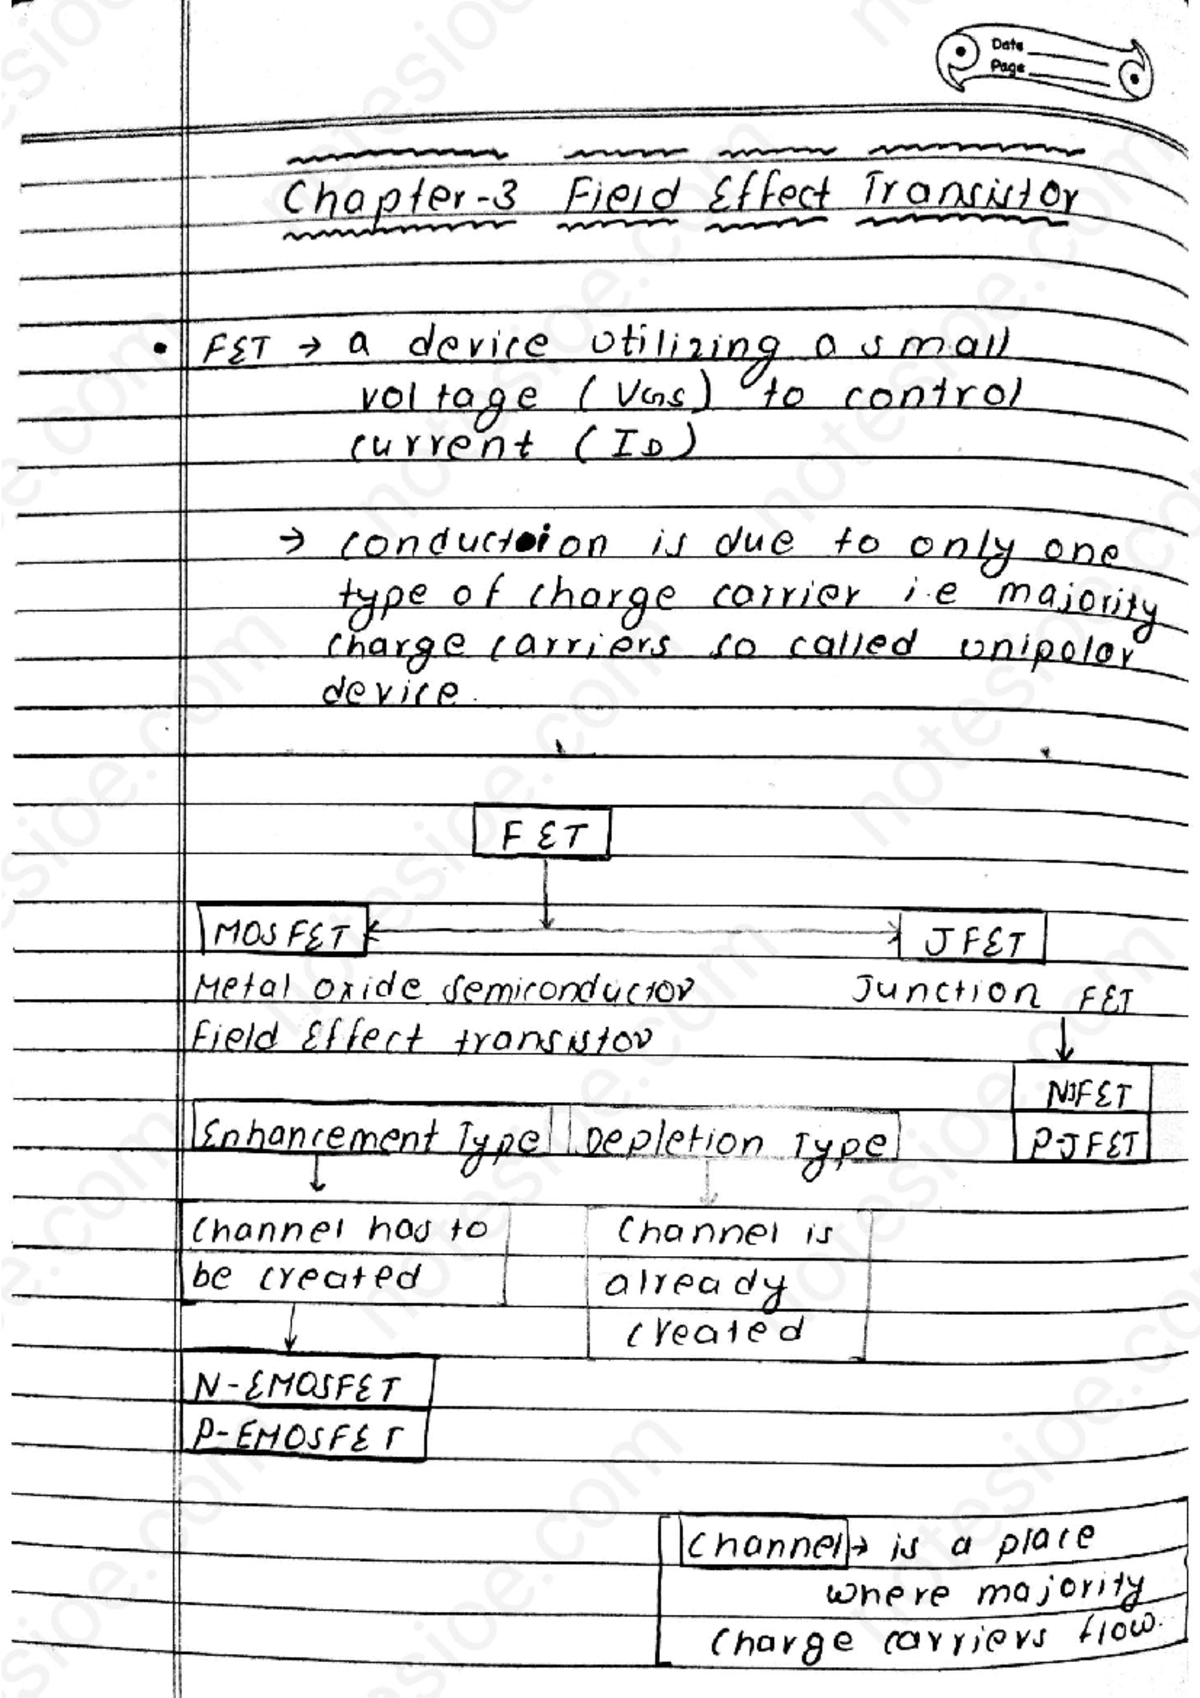 Date
Page
Chapter-3 Field Effect Transistor
• FET → a device utilizing a small
voltage (VGS) to control
current (ID)
→ conduction is due to only one
type of charge carrier i.e majority
charge carriers so called unipolar
device.
FET
MOSFET JFET
Metal oxide semiconductor Junction FET
Field Effect transistor
NJFET
Enhancement Type Depletion Type P-JFET
Channel has to Channel is
be created already
created
N-EMOSFET
P-EMOSFET
Channel → is a place
where majority
charge carriers flow.
notesioe.com